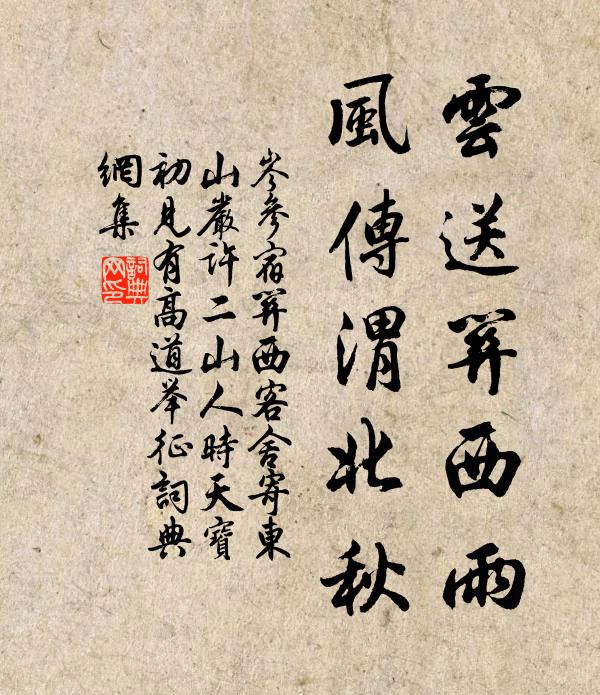 雲送關西雨
風傳渭北秋
岑參宿關西客舍寄東
山嚴許二山人時天寶
初見有高道举征詞典
網集
詞典
网印